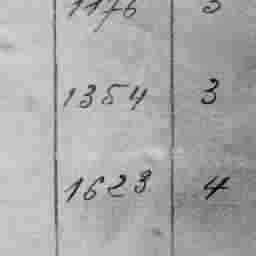 1176
1354 3
1623 4